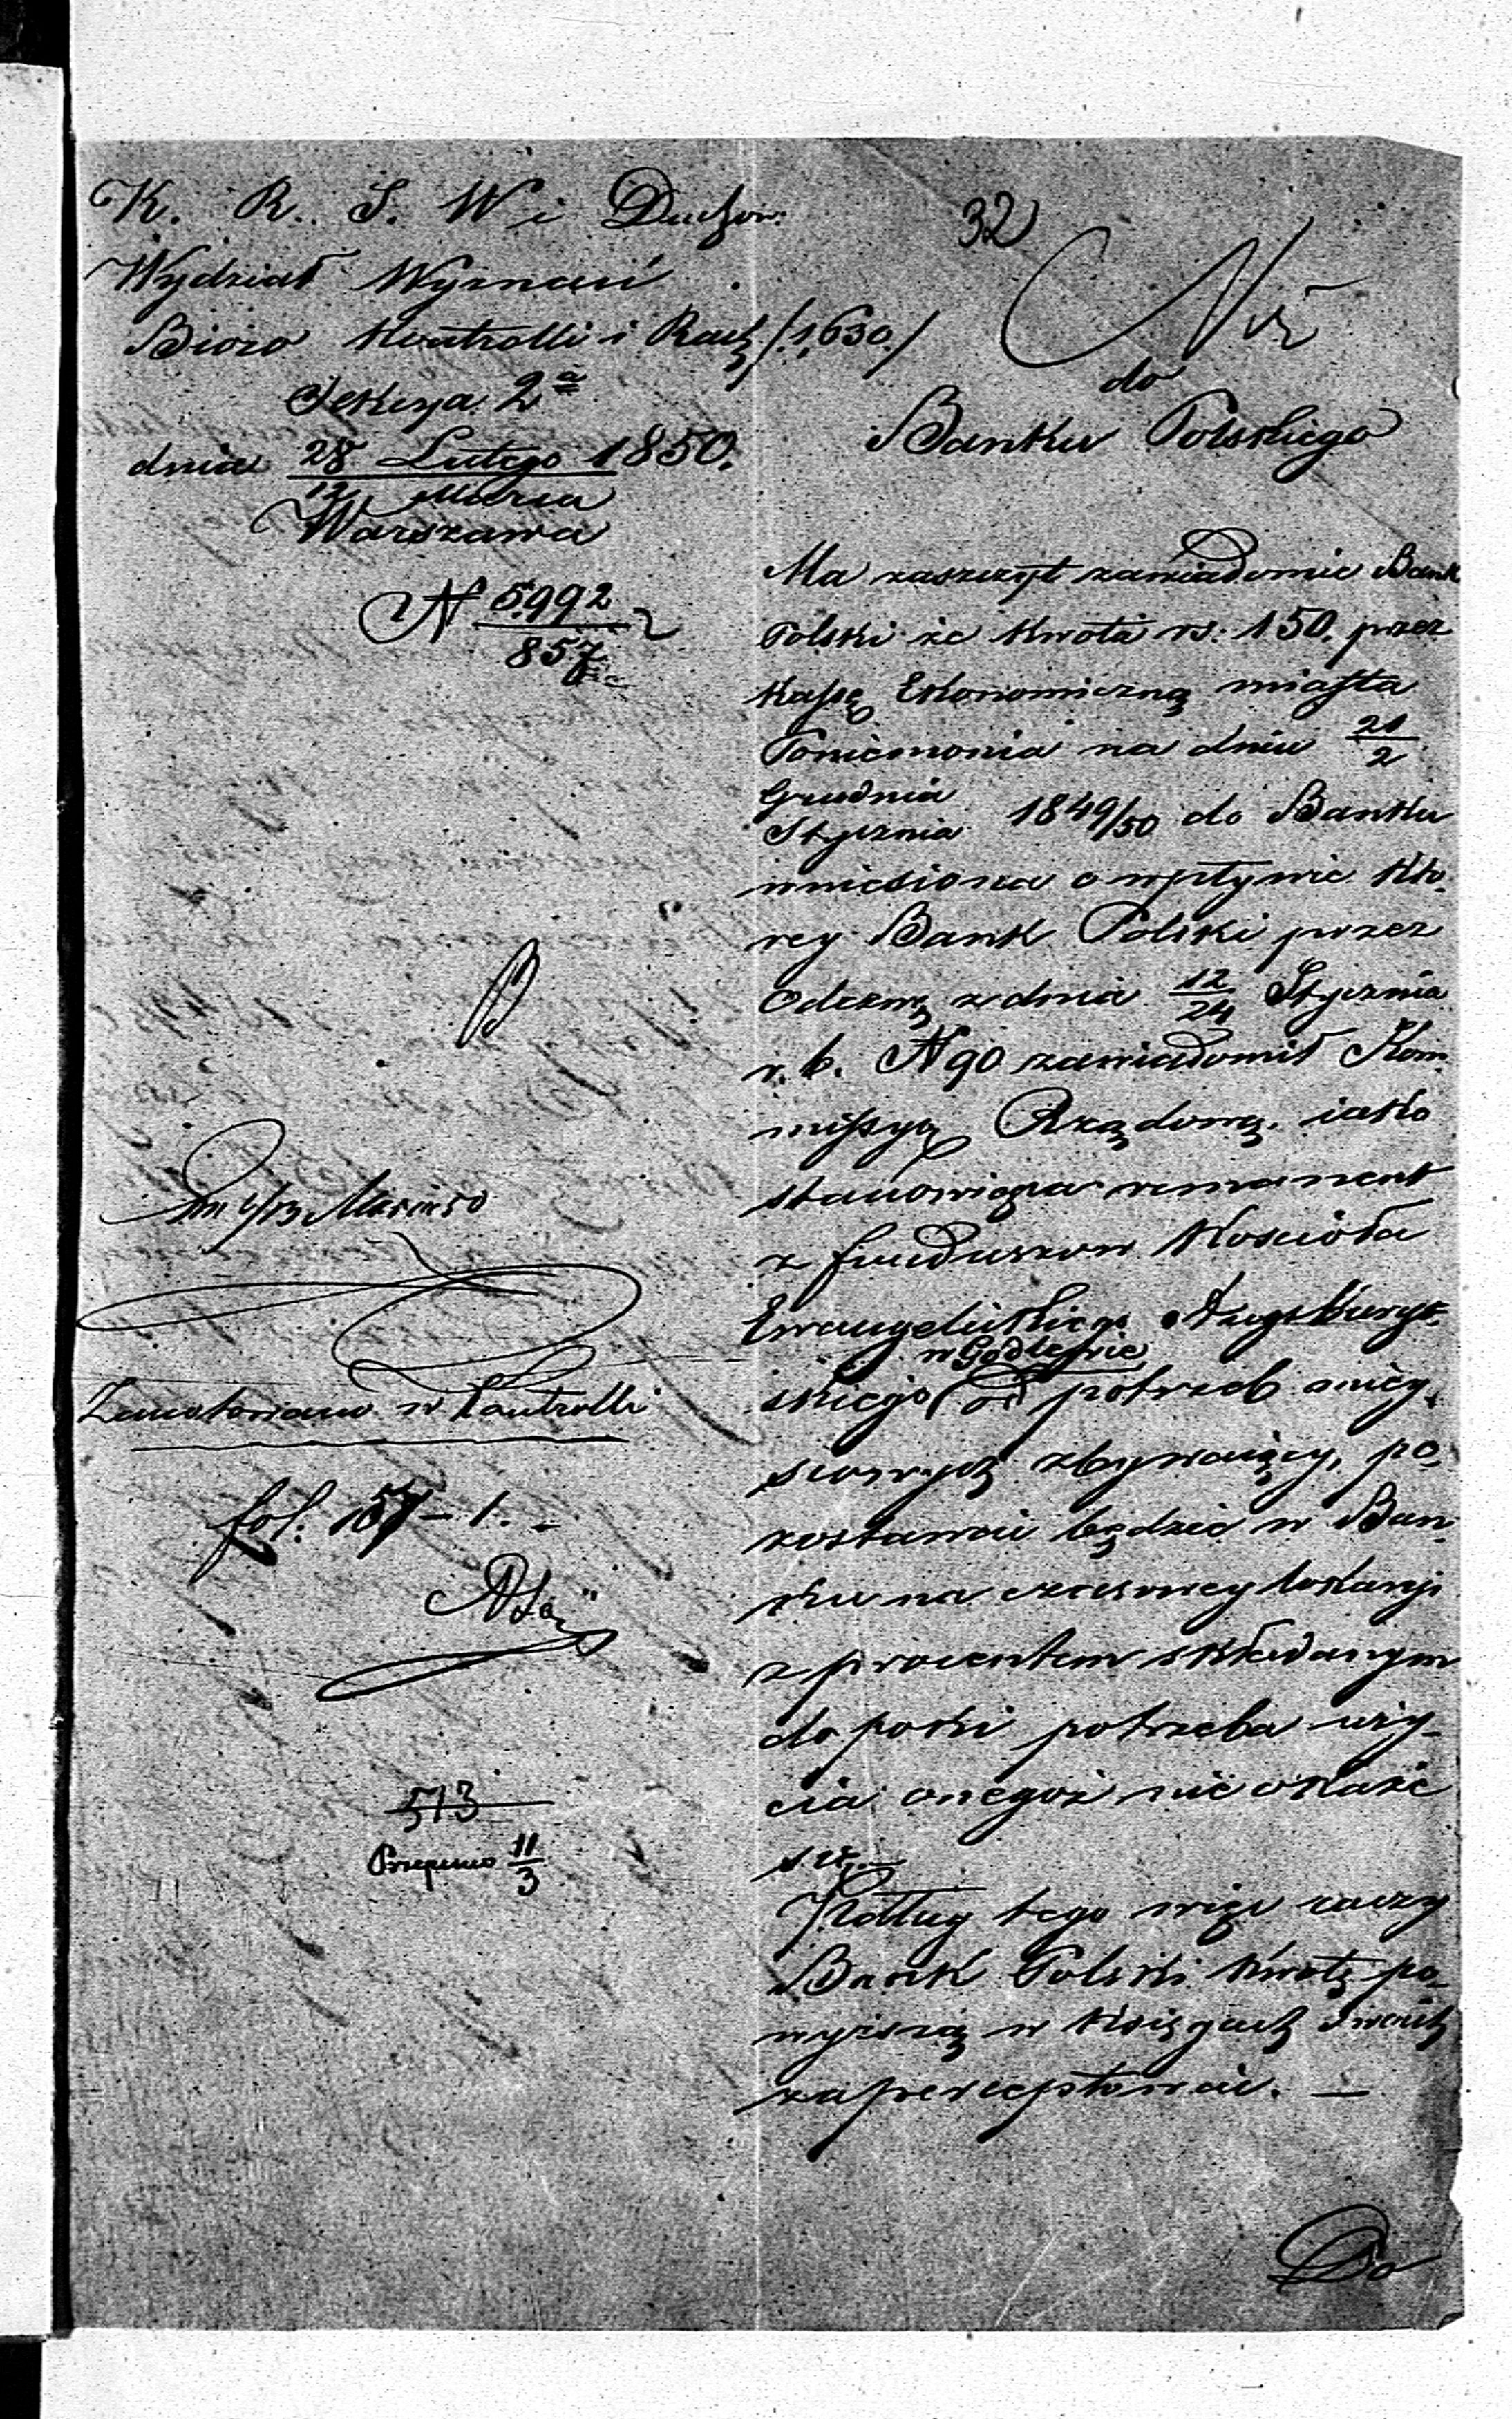 K. R. S. W i Duchow.
Wydział Wyznań
Bióro Kontrolli i Rach /:1630./
Sekcya 2ª
dnia 28 Lutego 1850.
12 Marca
Warszawa
N 5992
857
32
do
Banku Polskiego
Ma zaszczyt zawiadomić Bank
Polski że kwota rs: 150. przez
Kassę Ekonomiczną miasta
Poniemonia na dniu 21/2
Grudnia
Stycznia 1849/50 do Banku
wniesiona o wpływie któ-
rey Bank Polski przez
Odezwę z dnia 12/24 Stycznia
r. b. N 90 zawiadomił Kom-
missyę Rządową, iako
stanowiąca remanent
z funduszow Kościoła
Ewangelickiego Augsburgs-
w Godlewie
skiego od potrzeb miey-
scowych zbywaiący, po-
zostawać będzie w Ban-
ku na czasowey lokacyi
z procentem składanym
do poki potrzeba uży-
cia onegoż nie okaże
się.—
Podług tego więc raczy
Bank Polski kwotę po-
wyższą w Księgach swoich
zaperceptować. —
Do
Zanotowano w Kontrolli
fol. 157 – 1. –
513
Przepisano 11/3